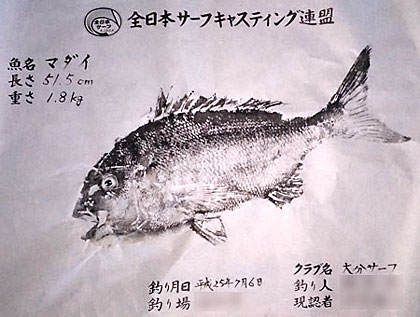 全日本
サーフ
全日本サーフキャスティング連盟
魚名 マダイ
長さ 51.5cm
重さ 1.8kg
釣り月日 平成25年7月6日
釣り場
クラブ名 大分サーフ
釣り人
現認者